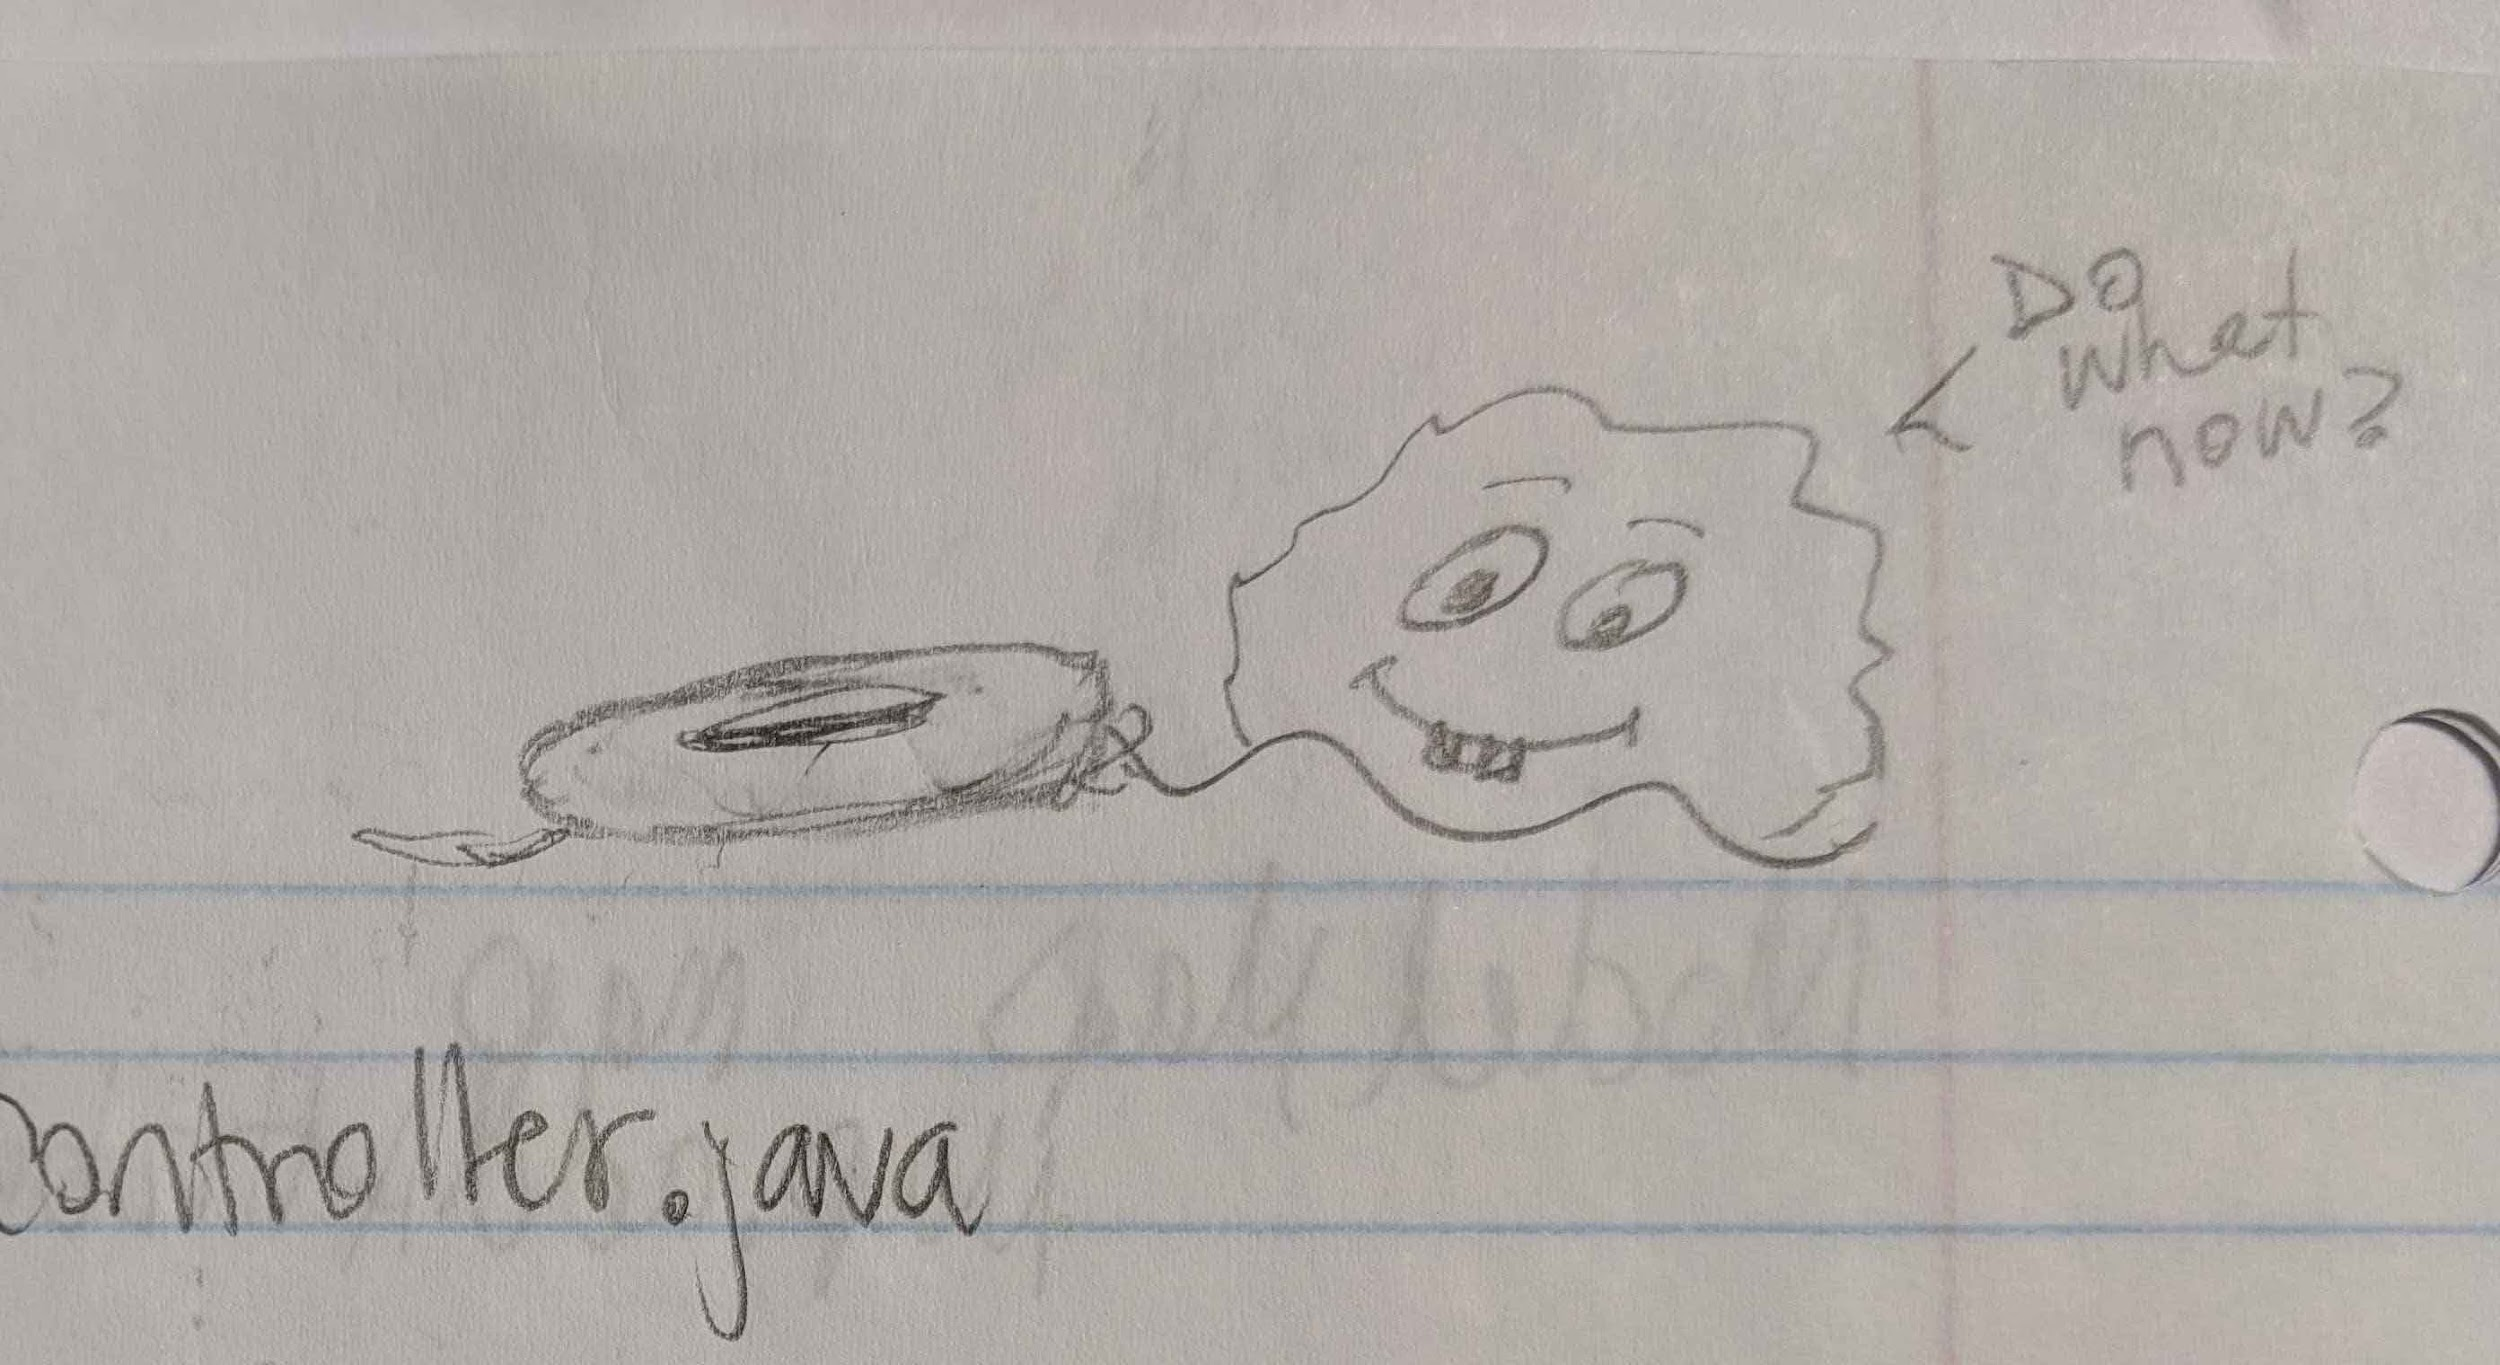 Do
what
now?
Controller.java